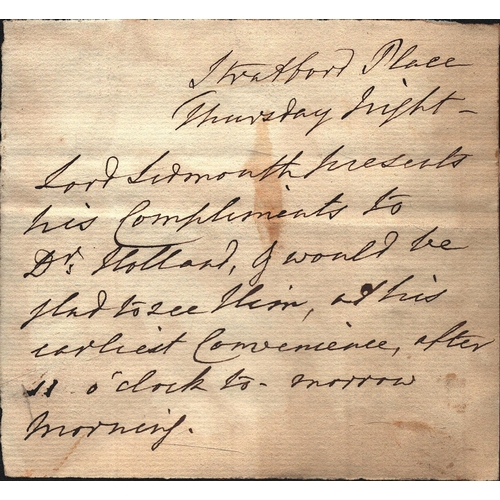 Stratford Place
Thursday Night -
Lord Sidmouth presents
his Compliments to
Dr. Holland, & would be
glad to see Him, at his
earliest Convenience, after
11 o'clock to-morrow
Morning.